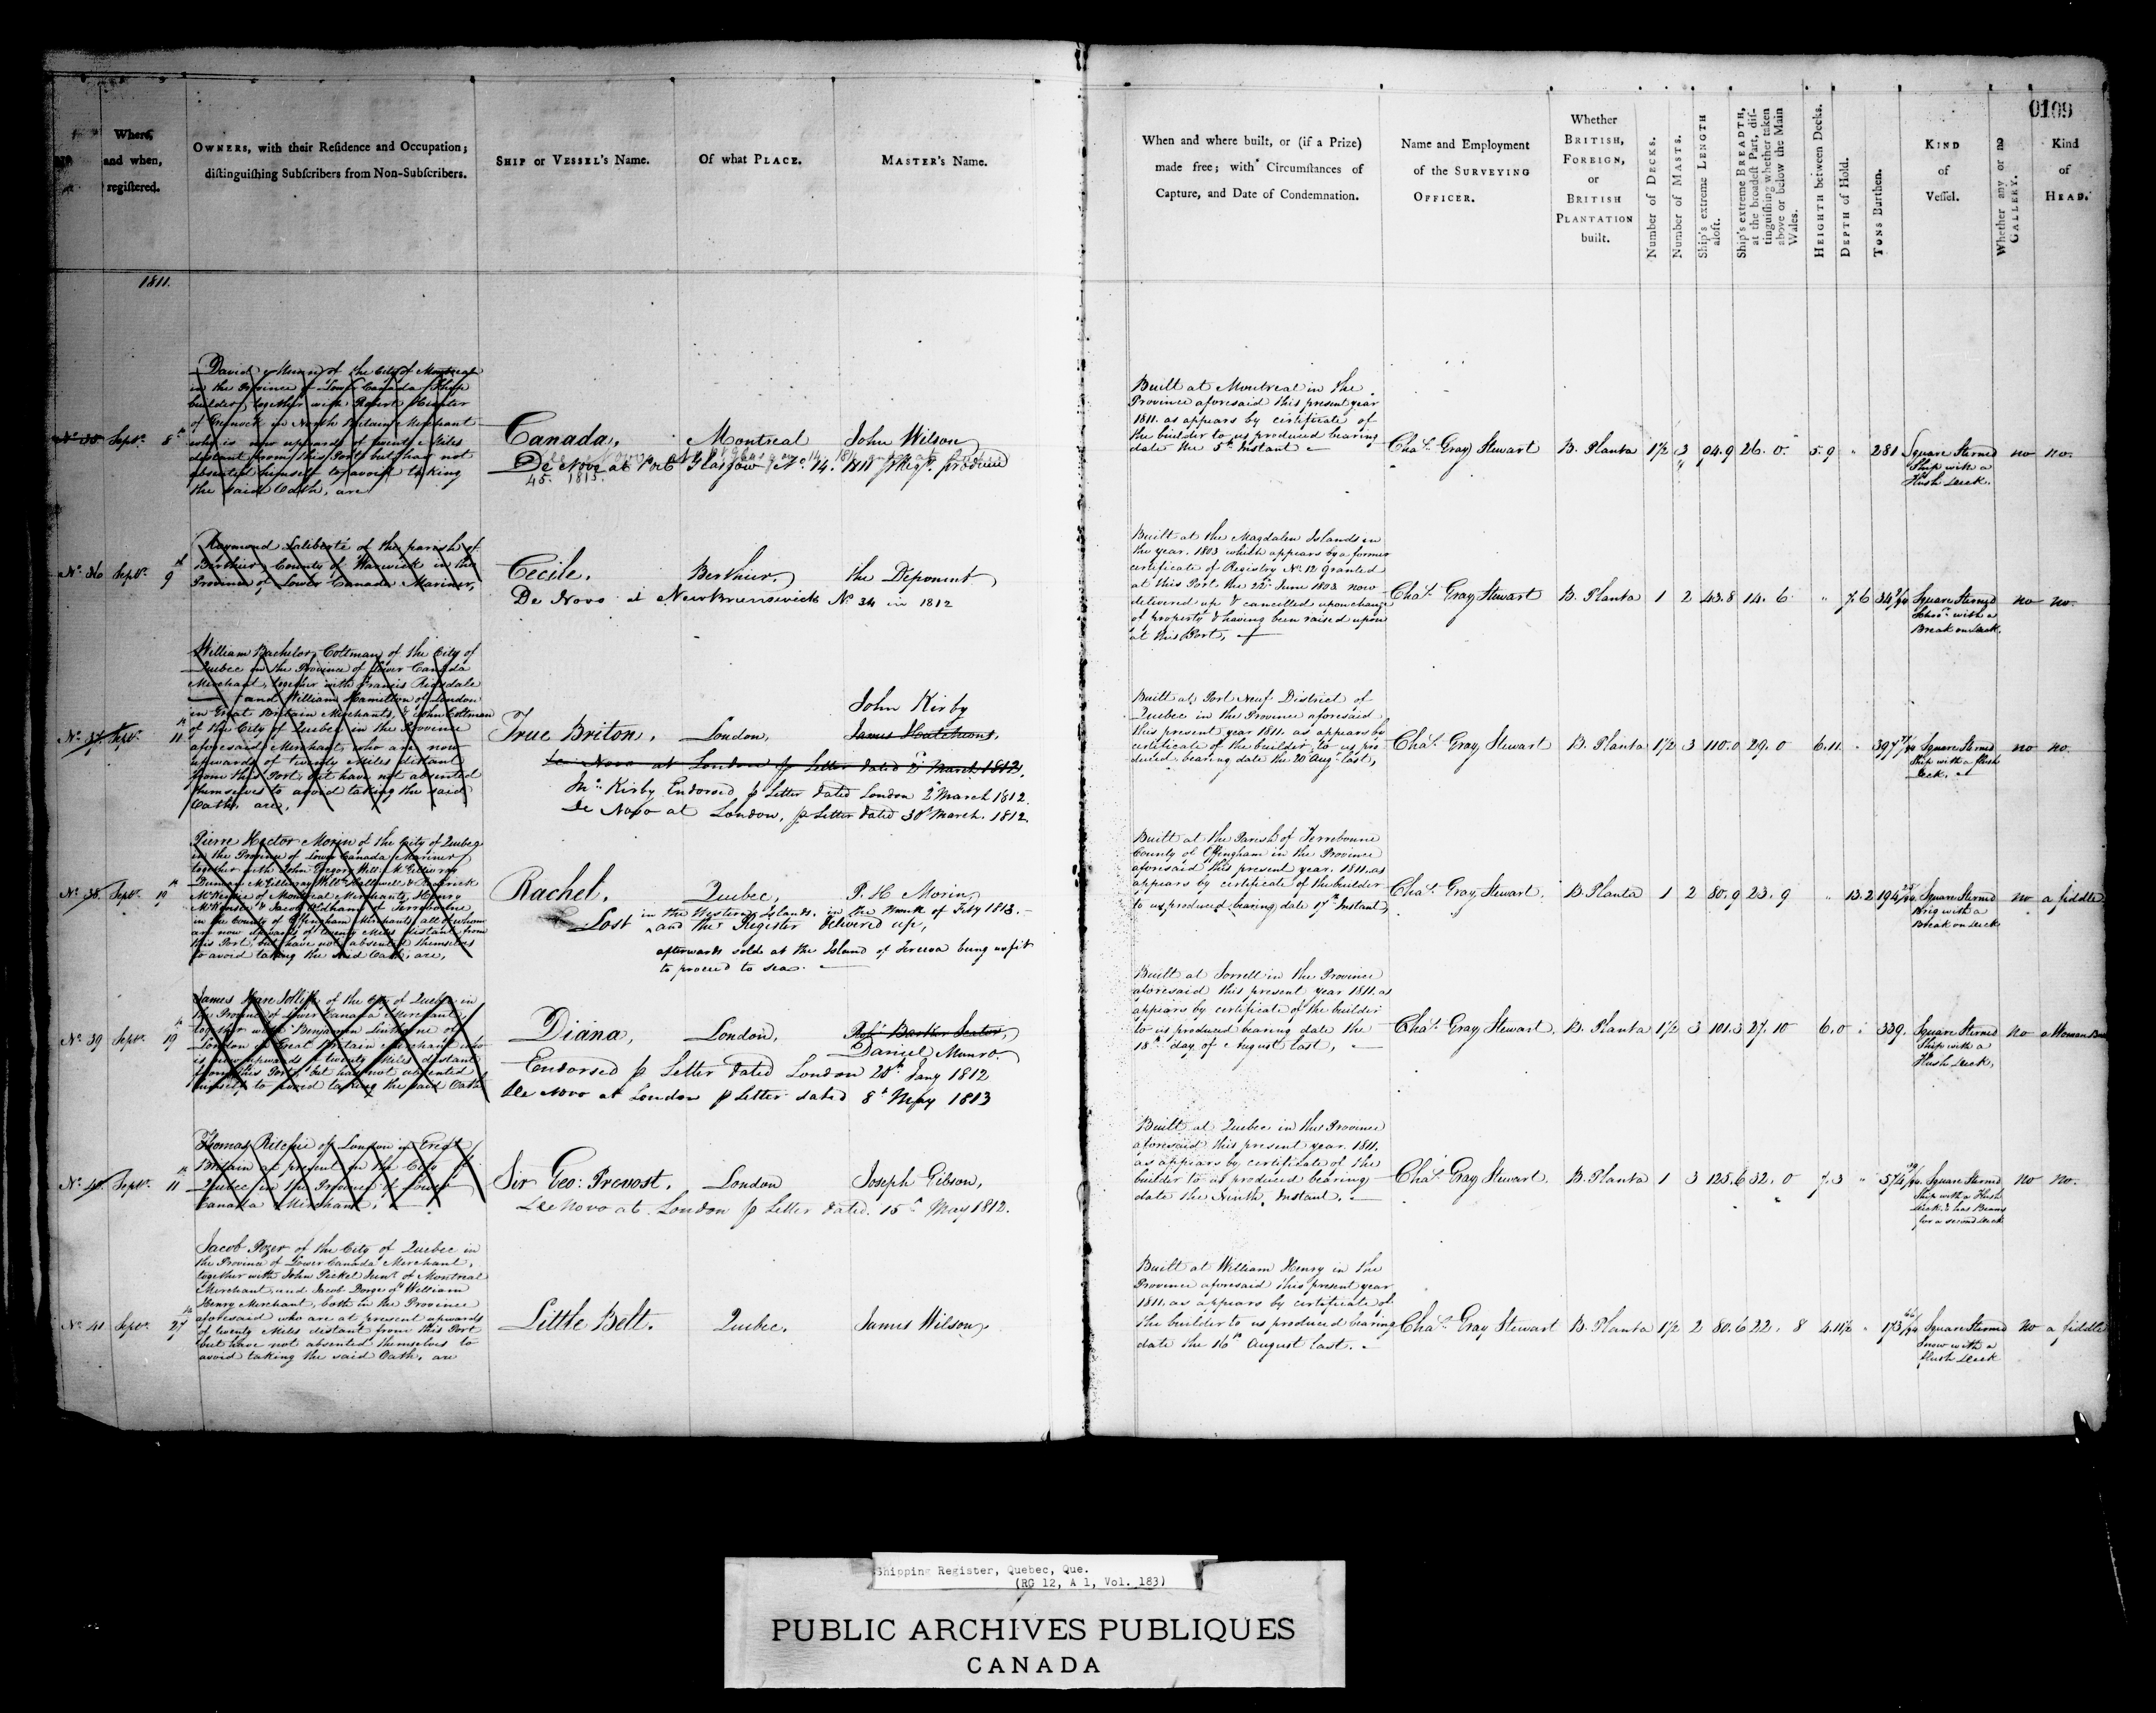 0109
Where,
and when,
registered.
OWNERS, with their Residence and Occupation;
distinguishing Subscribers from Non-Subscribers.
SHIP or VESSEL'S Name.
Of what PLACE.
MASTER'S Name.
When and where built, or (if a Prize)
made free; with Circumstances of
Capture, and Date of Condemnation.
Name and Employment
of the SURVEYING
OFFICER.
Whether
BRITISH,
FOREIGN,
or
BRITISH
PLANTATION
built.
Number of DECKS.
Number of MASTS.
Ship's extreme LENGTH
aloft.
Ship's extreme BREADTH,
at the broadest Part, dis-
tinguishing whether taken
above or below the Main
Wales.
HEIGHTH between Decks.
DEPTH of Hold.
TONS Burthen.
KIND
of
Vessel.
Whether any or no
GALLERY.
Kind
of
HEAD.
1811.
No. 35 Septr. 8th
David Munn of the City of Montreal
in the Province of Lower Canada Ship
builder, together with Robert Hunter
of Greenock in North Britain Merchant
who is now upwards of twenty Miles
distant from this Port, but has not
absented himself to avoid taking
the said Oath, are
Canada, Montreal John Wilson
De Novo at Port Glasgow No. 14. 1811
45. 1815.
Built at Montreal in the
Province aforesaid this present year
1811. as appears by certificate of
the builder to us produced bearing
date the 5th Instant
Chas. Gray Stewart B. Planta 1½ 3 94.9 26. 0. 5.9 " 281 Square Sterned
Ship with a
Flush Deck.
no no.
No. 36 Septr. 9th
Raymond Laliberté of the parish of
Berthier, County of Warwick in the
Province of Lower Canada Mariner,
Cecile. Berthier, the Deponent
De Novo at New Brunswick No. 34 in 1812
Built at the Magdalen Islands in
the year 1803 which appears by a former
certificate of Registry No. 12 granted
at this Port the 22d June 1803 now
delivered up & cancelled upon change
of property & having been raised upon
at this Port,
Chas. Gray Stewart B. Planta 1 2 43.8 14. 6 " 7.6 34 Square Sterned
Schoor. with a
Break on Deck.
no no.
No. 37. Septr. 11th
William Bachelor Coltman of the City of
Quebec in the Province of Lower Canada
Merchant, together with Francis
and William Hamilton of London
in Great Britain Merchants, & John Coltman
of the City of Quebec in the Province
aforesaid Merchant, who are now
upwards of twenty Miles distant
from this Port but have not absented
themselves to avoid taking the said
Oath, are,
John Kirby
True Briton. London, James Hutchinson,
De Novo at London p Letter dated 2d March 1812.
Jno. Kirby Endorsed p Letter dated London 2d March 1812.
De Novo at London, p Letter dated 30th March. 1812.
Built at Port Neuf District of
Quebec in the Province aforesaid
this present year 1811. as appears by
certificate of the builder to us pro
duced, bearing date the 20 Augt. last,
Chas. Gray Stewart B. Planta 1½ 3 110.0 29. 0 6.11. " 397 Square Sterned
Ship with a flush
Deck,
no no.
No. 38. Septr. 19th
Pierre Hector Morin of the City of Quebec
in the Province of Lower Canada Mariner
together with John Gregory Willm. McGillivray
Duncan McGillivray Willm. Hallowell & Roderick
McKenzie of Montreal Merchants, Henry
McKenzie & Jacob Oldham of Terrebonne
in the County of Effingham Merchants, all of whom
are now upwards of twenty Miles distant from
this Port, but have not absented themselves
to avoid taking the said Oath, are,
Rachel. Quebec, P. H Morin,
Lost in the Western Islands, in the Month of Feby 1813.
and the Register delivered up,
afterwards sold at the Island of Tercera being unfit
to proceed to sea.
Built at the Parish of Terrebonne
County of Effingham in the Province
aforesaid this present year, 1811. as
appears by certificate of the builder
to us produced bearing date 17th Instant,
Chas. Gray Stewart. B. Planta 1 2 80.9 23. 9 " 13.2 194 Square Sterned
Brig with a
Break on Deck
no a fiddle
No. 39 Septr. 19th
James Hare Jolliffe of the City of Quebec in
the Province of Lower Canada Merchant,
together with Benjamin Linthorne of
London in Great Britain Merchant who
is now upwards of twenty Miles distant
from this Port, but has not absented
himself to avoid taking the said Oath
Diana, London, Robt. Barker Seator,
Daniel Munro.
Endorsed p Letter dated London 20th Jany 1812
De Novo at London p Letter dated 8th May 1813
Built at Sorrell in the Province
aforesaid this present year 1811. as
appears by certificate of the builder
to us produced bearing date the
18th day of August last,
Chas. Gray Stewart. B. Planta 1½ 3 101.3 27. 10 6.0 " 339. Square Sterned
Ship with a
Flush Deck,
no a Woman Bust
No. 40. Septr. 11th
Thomas Ritchie of London in Great
Britain at present in the City of
Quebec in the Province of Lower
Canada Merchant,
Sir Geo: Prevost. London Joseph Gibson,
De Novo at London p Letter dated. 15th May 1812.
Built at Quebec in the Province
aforesaid this present year. 1811.
as appears by certificate of the
builder to us produced bearing
date the Ninth Instant,
Chas. Gray Stewart. B. Planta 1 3 125.6 32. 0 7.3 " 574 Square Sterned
Ship with a Flush
Deck & has Beams
for a second Deck
no no.
No. 41 Septr. 27th
Jacob Pozer of the City of Quebec in
the Province of Lower Canada Merchant,
together with John Pickel Junr. of Montreal
Merchant, and Jacob Dorge of William
Henry Merchant, both in the Province
aforesaid who are at present upwards
of twenty Miles distant from this Port
but have not absented themselves to
avoid taking the said Oath, are
Little Belt. Quebec. James Wilson.
Built at William Henry in the
Province aforesaid this present year
1811. as appears by certificate of
the builder to us produced bearing
date the 16th August last.
Chas. Gray Stewart B. Planta 1½ 2 80.6 22. 8 4.11½ " 173 Square Sterned
Snow with a
flush Deck
no a fiddle
Shipping Register, Quebec, Que.
(RG 12, A 1, Vol. 183)
PUBLIC ARCHIVES PUBLIQUES
CANADA